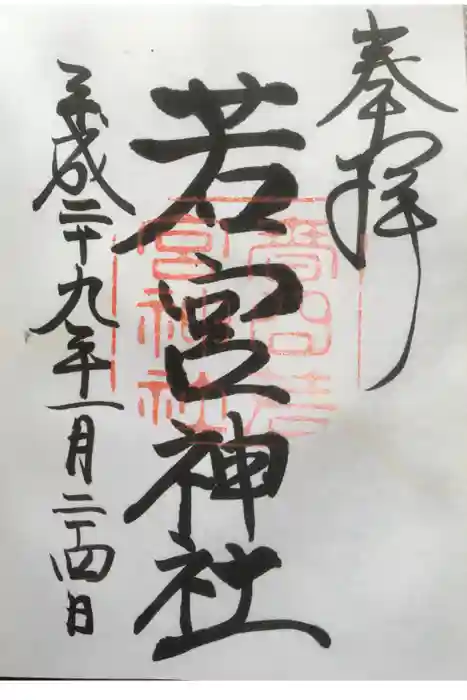 奉拝
若宮神社
平成二十九年一月二十四日